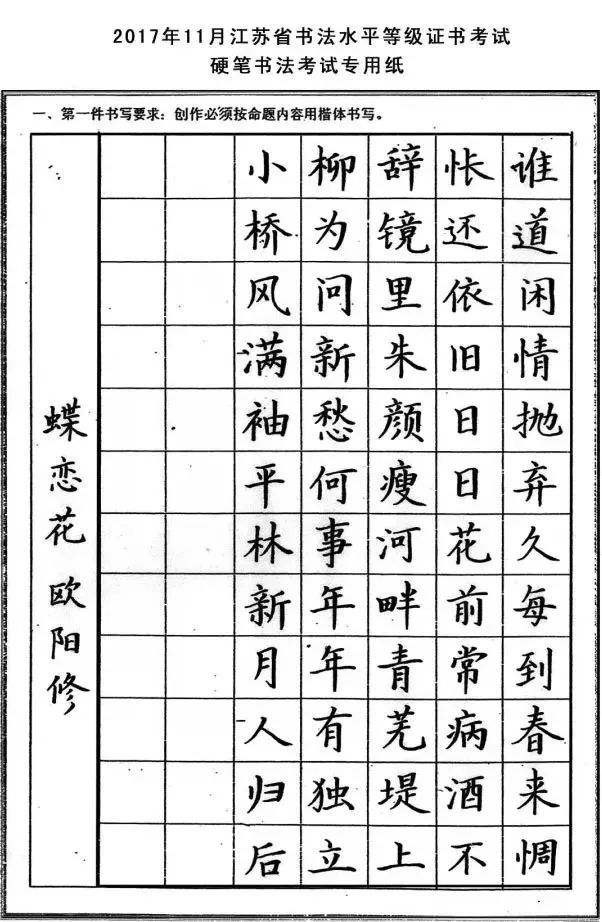 2017年11月江苏省书法水平等级证书考试
硬笔书法考试专用纸
一、第一件书写要求：创作必须按命题内容用楷体书写。
谁道闲情抛弃久每到春来惆
怅还依旧日日花前常病酒不
辞镜里朱颜瘦河畔青芜堤上
柳为问新愁何事年年有独立
小桥风满袖平林新月人归后
蝶恋花 欧阳修